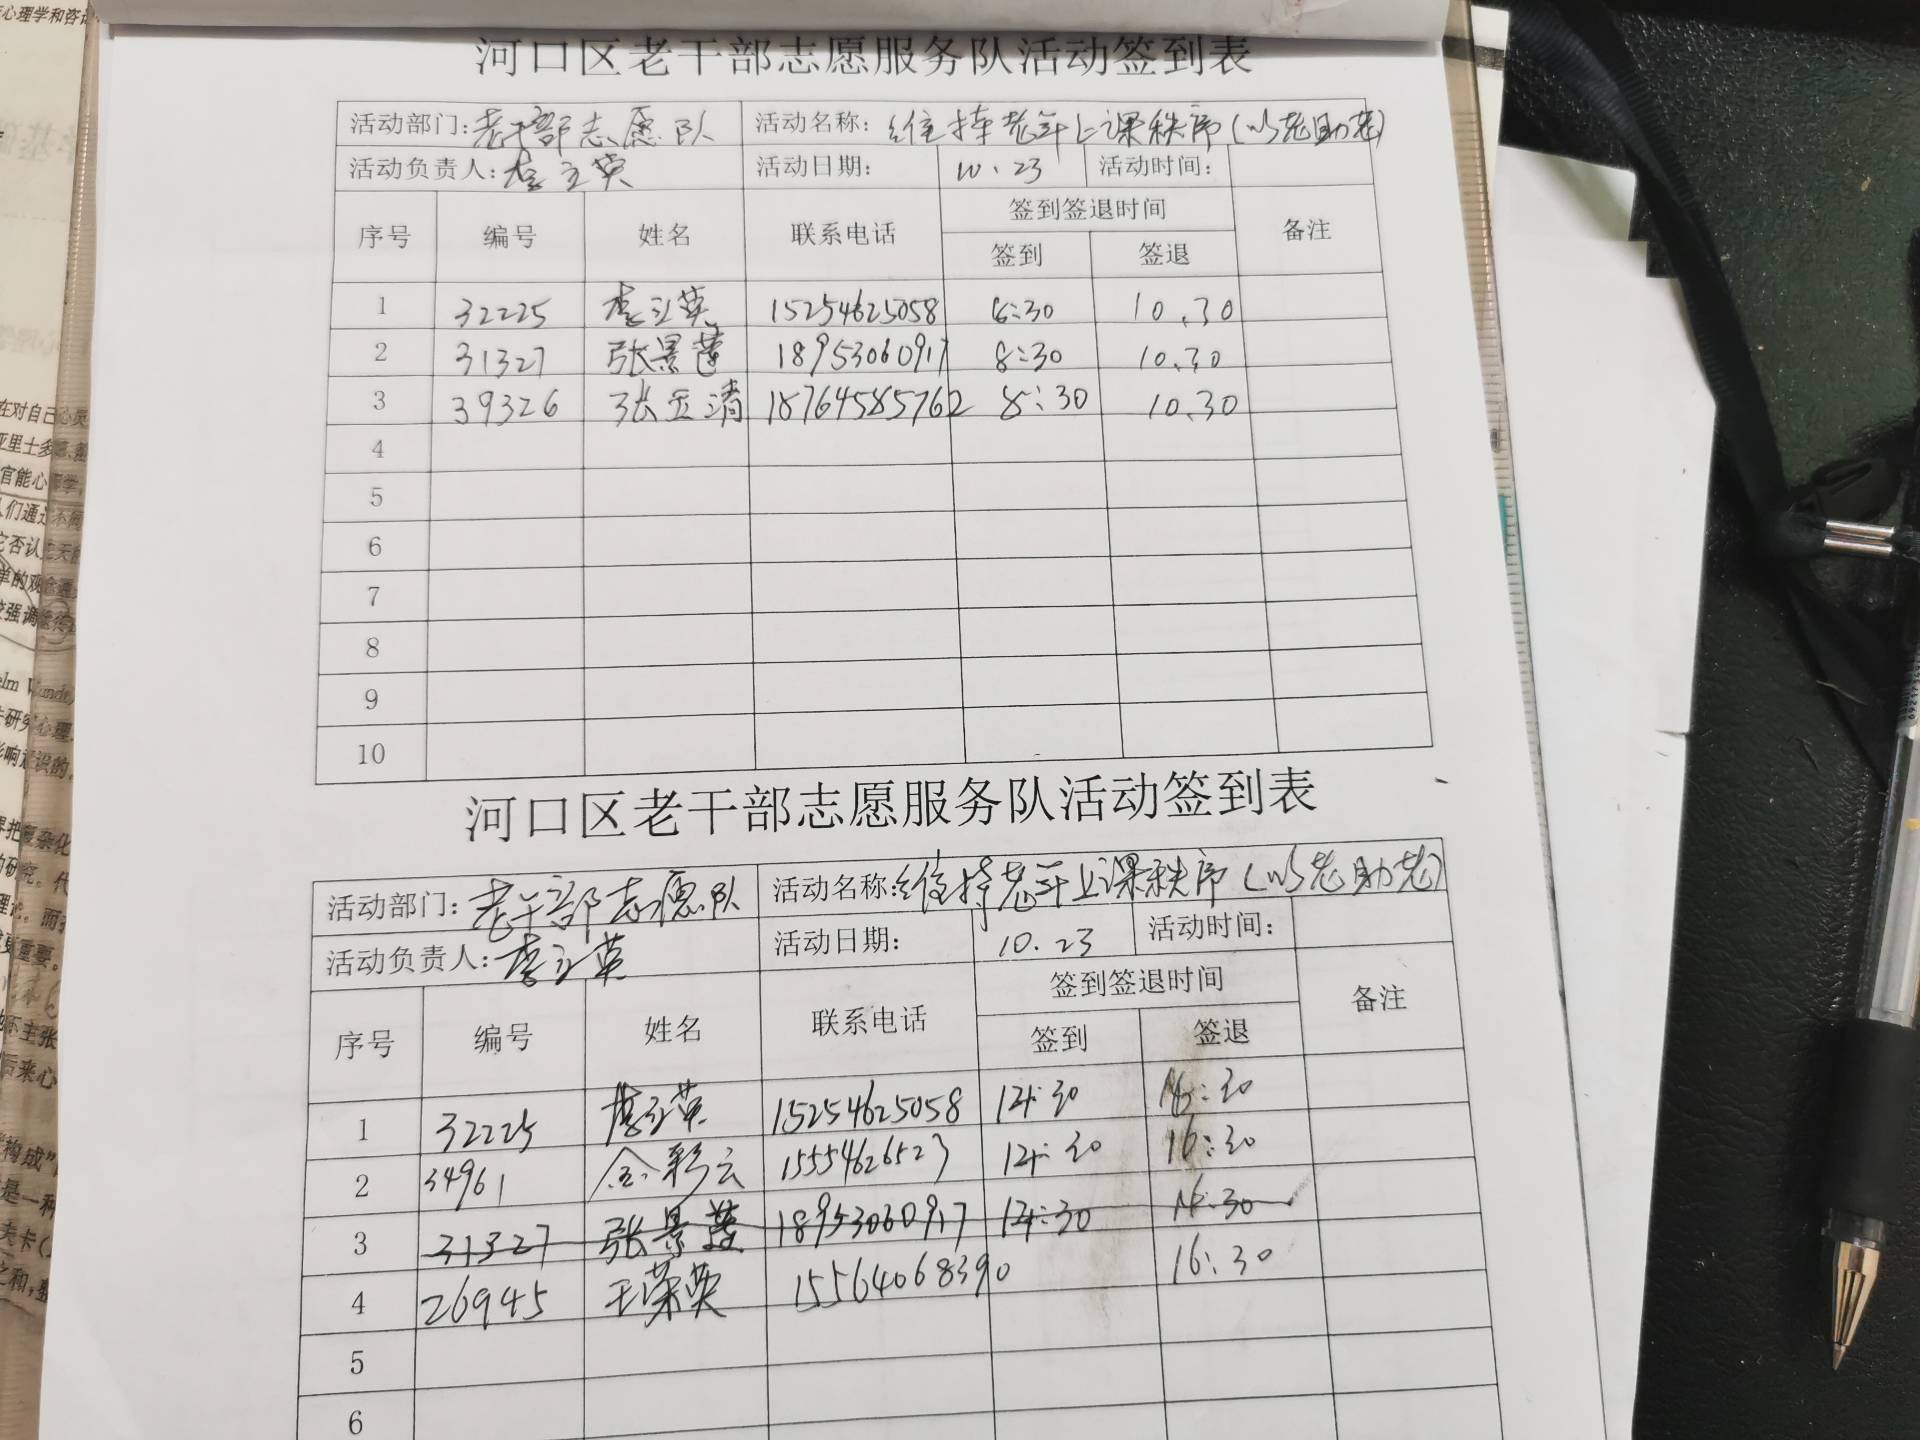 河口区老干部志愿服务队活动签到表
活动部门:老干部志愿队 活动名称:维持老年上课秩序(以老助老)
活动负责人:李立英 活动日期: 10.23 活动时间:
序号 编号 姓名 联系电话 签到签退时间 备注
签到 签退
1 32225 李立英 15254625058 8:30 10.30
2 31327 张景莲 18953060917 8:30 10.30
3 39326 张玉清 18764585762 8:30 10.30
4
5
6
7
8
9
10
河口区老干部志愿服务队活动签到表
活动部门:老干部志愿队 活动名称:维持老年上课秩序(以老助老)
活动负责人:李立英 活动日期: 10.23 活动时间:
序号 编号 姓名 联系电话 签到签退时间 备注
签到 签退
1 32225 李立英 15254625058 14:30 16:30
2 34961 金彩云 15554626523 14:30 16:30
3 31327 张景莲 18953060917 14:30 16:30
4 26945 王荣英 15564068390 16:30
5
6